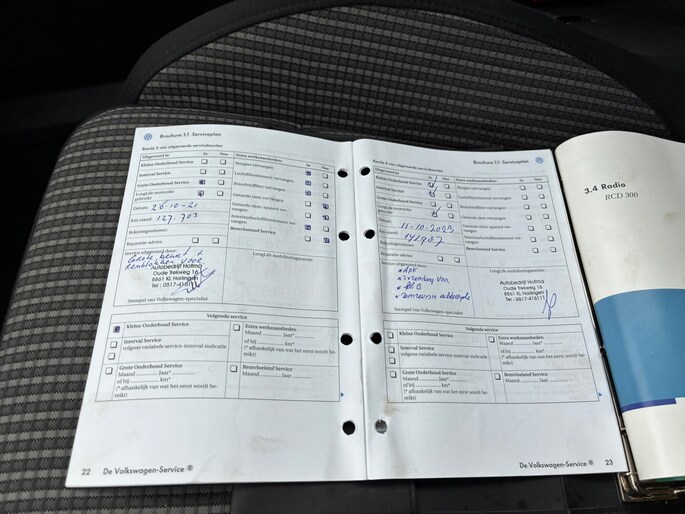 Brochure 1.1 Serviceplan
Reeds 5 van uitgevoerde servicebeurten
Uitgevoerd te:
Ja
Nee
Kleine Onderhoud Service
Interval Service
Grote Onderhoud Service
Longlife motorolie
gebruikt
Datum: 26-10-21
Km-stand: 127.703
Rekeningnummer:
Reparatie-advies
Service uitgevoerd door:
Autobedrijf Hofma
Oude Trekweg 16
8861 KL Harlingen
Tel.: 0517-415111
Stempel van Volkswagen-specialist
Extra werkzaamheden:
Ja
Nee
Bougies vervangen
Luchtfilterelement
vervangen
Brandstoffilter vervangen
Getande riem vervangen
Getande riem, spanrol ver-
vangen
Interieurluchtfilterelement
vervangen
Remvloeistof Service
Longlife mobiliteitsgarantie:
Volgende service
Kleine Onderhoud Service
Interval Service
volgens variabele service-interval-indicatie
Grote Onderhoud Service
Maand .......... Jaar*
of bij .......... km*
(* afhankelijk van wat het eerst wordt be-
reikt)
Extra werkzaamheden
Maand .......... Jaar*
of bij .......... km*
(* afhankelijk van wat het eerst wordt be-
reikt)
Remvloeistof Service
Maand .......... Jaar
22
De Volkswagen-Service
Brochure 1.1 Serviceplan
Datum: 11-10-2023
Km-stand: 141907
Rekeningnummer:
Reparatie-advies
Service uitgevoerd door:
APK
Autobedrijf Hofma
Oude Trekweg 16
8861 KL Harlingen
Tel.: 0517-415111
Stempel van Volkswagen-specialist
Bougies vervangen
Luchtfilterelement
vervangen
Brandstoffilter vervangen
Getande riem vervangen
Getande riem, spanrol ver-
vangen
Interieurluchtfilterelement
vervangen
Remvloeistof Service
Volgende service
Kleine Onderhoud Service
Interval Service
volgens variabele service-interval-indicatie
Grote Onderhoud Service
Maand .......... Jaar*
of bij .......... km*
(* afhankelijk van wat het eerst wordt be-
reikt)
Extra werkzaamheden
Maand .......... Jaar*
of bij .......... km*
(* afhankelijk van wat het eerst wordt be-
reikt)
Remvloeistof Service
Maand .......... Jaar
De Volkswagen-Service
23
3.4 Radio
RCD 300